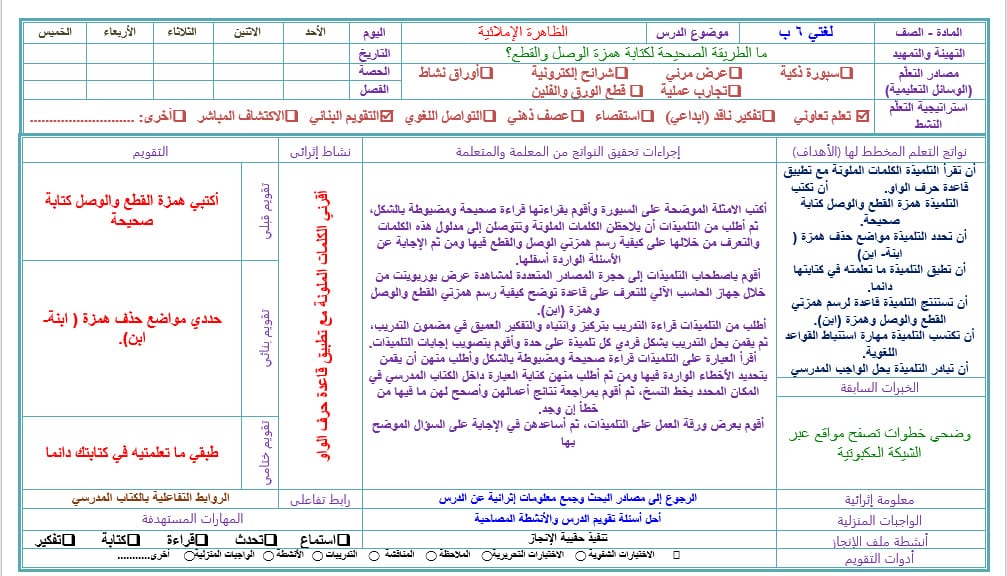 المادة - الصف
لغتي ٦ ب
موضوع الدرس
الظاهرة الإملائية
اليوم
الأحد
الاثنين
الثلاثاء
الأربعاء
الخميس
التهيئة والتمهيد
ما الطريقة الصحيحة لكتابة همزة الوصل والقطع؟
التاريخ
مصادر التعلّم
(الوسائل التعليمية)
سبورة ذكية
عرض مرئي
شرائح إلكترونية
أوراق نشاط
تجارب عملية
قطع الورق والفلين
الحصة
الفصل
استراتيجية التعلّم
النشط
تعلم تعاوني
تفكير ناقد (ابداعي)
استقصاء
عصف ذهني
التواصل اللغوي
التقويم البنائي
الاكتشاف المباشر
أخرى: ...........................
نواتج التعلم المخطط لها (الأهداف)
إجراءات تحقيق النواتج من المعلمة والمتعلمة
نشاط إثرائي
التقويم
أن تقرأ التلميذة الكلمات الملونة مع تطبيق
قاعدة حرف الواو. أن تكتب
التلميذة همزة القطع والوصل كتابة
صحيحة.
أن تحدد التلميذة مواضع حذف همزة (
ابنة- ابن)
أن تطبق التلميذة ما تعلمته في كتابتها
دائما.
أن تستنتج التلميذة قاعدة لرسم همزتي
القطع والوصل وهمزة (ابن).
أن تكتسب التلميذة مهارة استنباط القواعد
اللغوية.
أن تبادر التلميذة بحل الواجب المدرسي
الخبرات السابقة
وضحي خطوات تصفح مواقع عبر
الشبكة العكبوتية
أكتب الامثلة الموضحة على السبورة وأقوم بقراءتها قراءة صحيحة ومضبوطة بالشكل،
ثم أطلب من التلميذات أن يلاحظن الكلمات الملونة ونتوصلن إلى مدلول هذه الكلمات
والتعرف من خلالها على كيفية رسم همزتي الوصل والقطع فيها ومن ثم الإجابة عن
الأسئلة الواردة أسفلها.
أقوم باصطحاب التلميذات إلى حجرة المصادر المتعددة لمشاهدة عرض بوربوينت من
خلال جهاز الحاسب الآلي للتعرف على قاعدة توضح كيفية رسم همزتي القطع والوصل
وهمزة (ابن).
أطلب من التلميذات قراءة التدريب بتركيز وانتباه والتفكير العميق في مضمون التدريب،
ثم يقمن بحل التدريب بشكل فردي كل تلميذة على حدة وأقوم بتصويب إجابات التلميذات.
أقرأ العبارة على التلميذات قراءة صحيحة ومضبوطة بالشكل وأطلب منهن أن يقمن
بتحديد الأخطاء الواردة فيها ومن ثم أطلب منهن كتابة العبارة داخل الكتاب المدرسي في
المكان المحدد بخط النسخ، ثم أقوم بمراجعة نتائج أعمالهن وأصحح لهن ما فيها من
خطأ إن وجد.
أقوم بعرض ورقة العمل على التلميذات، ثم أساعدهن في الإجابة على السؤال الموضح
بها
أقرئي الكلمات الملونة مع تطبيق قاعدة حرف الواو
تقويم قبلي
أكتبي همزة القطع والوصل كتابة
صحيحة
تقويم بنائي
حددي مواضع حذف همزة ( ابنة-
ابن).
تقويم ختامي
طبقي ما تعلمتيه في كتابتك دائما
معلومة إثرائية
الرجوع إلى مصادر البحث وجمع معلومات إثرائية عن الدرس
رابط تفاعلي
الروابط التفاعلية بالكتاب المدرسي
الواجبات المنزلية
أحل أسئلة تقويم الدرس والأنشطة المصاحبة
المهارات المستهدفة
أنشطة ملف الإنجاز
تنفيذ حقيبة الإنجاز
استماع
تحدث
قراءة
كتابة
تفكير
أدوات التقويم
الاختبارات الشفوية
الاختبارات التحريرية
الملاحظة
المناقشة
التدريبات
الأنشطة
الواجبات المنزلية
أخرى...........